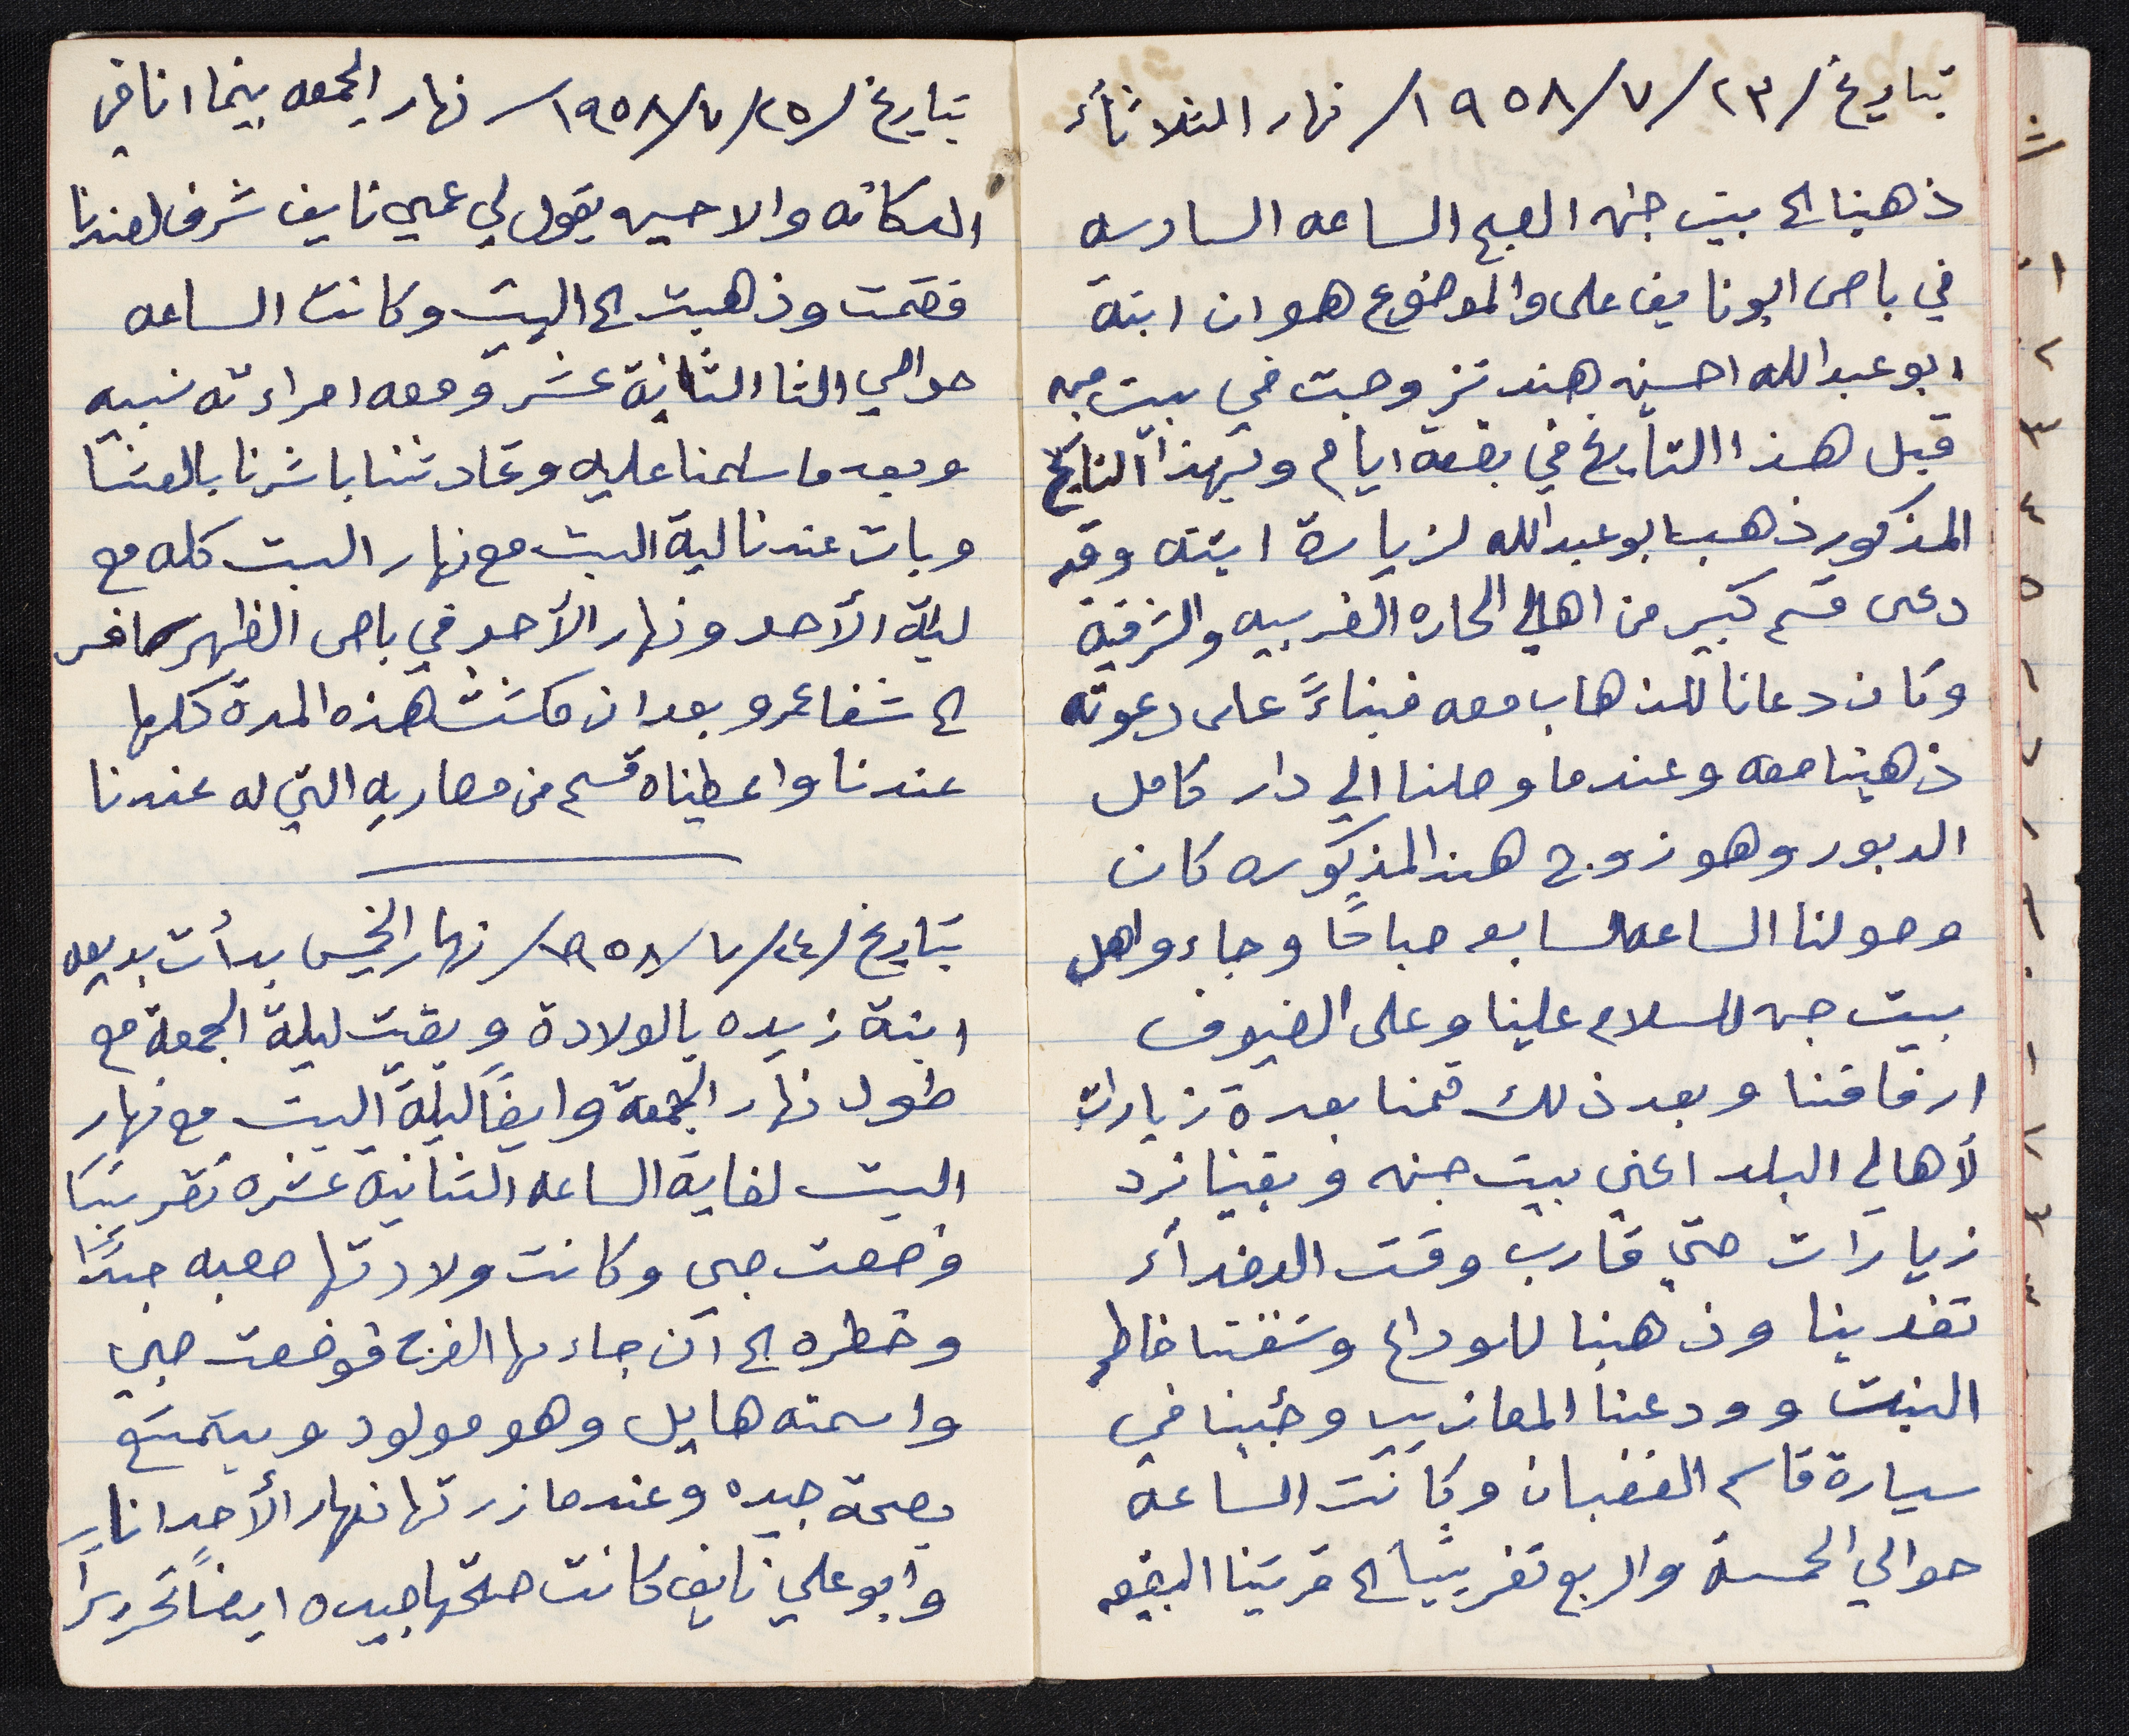 بتاريخ / ٢٣ / ٧ / ١٩٥٨ / نهار الثلاثأء
ذهبنا الى بيت جنه الصبح الساعه السادسه
في باص ابو نايف على والموضوع هو ان ابنة
ابو عبدالله احسنه هند تزوجت في بيت جنه
قبل هذا التأريخ في بضعة ايام وبهذا التاريخ
المذكور ذهب ابو عبدالله لزيارة ابنته وقد
دعى قسم كبير من اهالي الحاره الغربيه والشرقية
وكان دعانا للذهاب معه فبناءً على دعوته
ذهبنا معه وعندما وصلنا الى دار كامل
الدبور وهو زوج هند المذكوره كان
وصولنا الساعه السابعه صباحًا وجاءو اهل
بيت جنه للسلام علينا وعلى الضيوف
ارفاقنا وبعد ذلك قمنا بعدة زيارات
لأهالي البلد اعني بيت جنه وبقينا نرد
زيارات حتى قارب وقت الغدأء
تغدينا وذهبنا للوداع وسقنا خاطر
البنت وودعنا المعازيب وجئنا في
سيارة قاسم الغضبان وكانت الساعة
حوالي الخمسة والربع تقريبًا الى قريتنا البقيعه
بتاريخ / ٢٥ / ٧ / ١٩٥٨ / نهار الجمعه بينما انا في
الدكانه والا حسين يقول لي عمي نايف شرف لعندنا
فقمت وذهبت الى البيت وكانت الساعه
حوالي الثا الثانية عشر ومعه امراءته نبيه
وبعد ما سلمنا عليه وتحادثنا باشرنا بالعشا
وبات عندنا ليلة السبت مع نهار السبت كله مع
ليلة الأحد ونهار الأحد في باص الظهر سافر
الى شفاعمرو بعد ان مكث هذه المدة كلها
عندنا واعطيناه قسم من مصاريه التي له عندنا
بتاريخ / ٢٤ / ٧ / ١٩٥٨ / نهار الخميس بدأت بديعه
ابنة زيده بالولادة وبقيت ليلة الجمعة مع
طول نهار الجمعة وايضًا ليلة السبت مع نهار
السبت لغاية الساعه الثانية عشره تقريبًا
وضعت صبي وكانت ولادتها صعبه جدًا
وخطره الى ان جاءها الفرج فوضعت صبي
واسمته هايل وهو مولود ويتمتع
بصحة جيده وعندما زرتها نهار الأحد انا
وابو علي نايف كانت صحتها جيده ايضًا تحريرًا